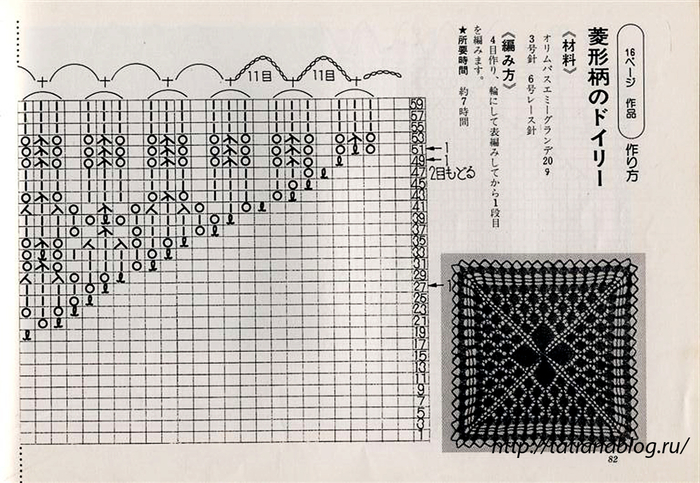 16ページ 作品 作り方
菱形柄のドイリー
《材料》
オリムパスエミーグランデ20g
3号針 6号レース針
《編み方》
4目作り、輪にして表編みしてから1段目
を編みます。
★所要時間 約7時間
11目
11目
59
57
55
53
51
1
49
1
47
2目もどる
45
43
41
39
37
35
33
31
29
27
1
25
23
21
19
17
15
13
11
9
7
5
3
1
http://tatianablog.ru/
82